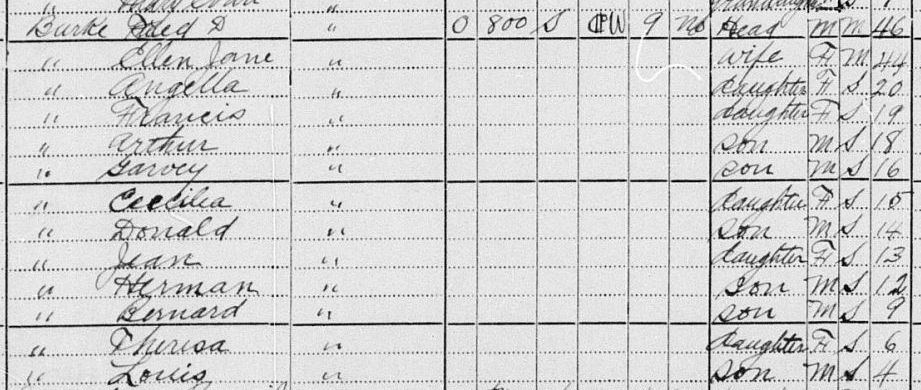 " Mary " granddaughter S 1
Burke D " O 800 S W 9 No Head M M 46
" Ellen Jane " wife F M 44
" Angella " daughter F S 20
" Francis " daughter F S 19
" Arthur " son M S 18
" Garvey " son M S 16
" Cecilia " daughter F S 15
" Donald " son M S 14
" Jean " daughter F S 13
" Herman " son M S 12
" Bernard " son M S 9
" Theresa " daughter F S 6
" Louis " son M S 4